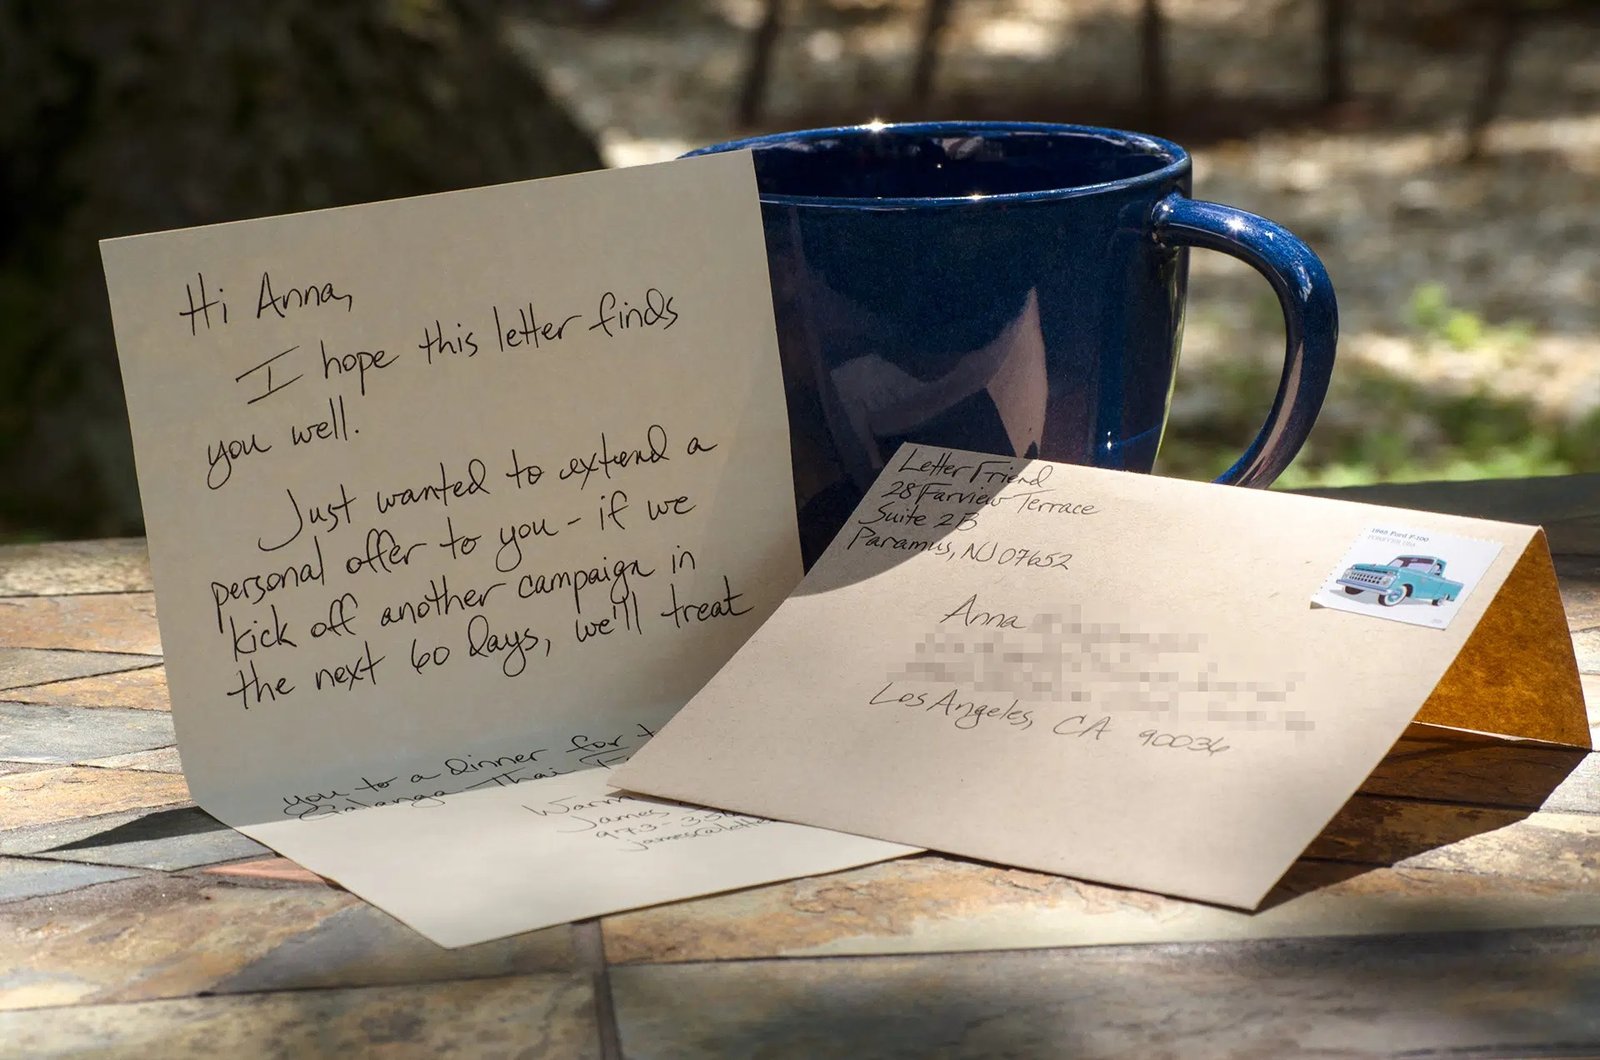 Hi Anna,
I hope this letter finds
you well.
Just wanted to extend a
personal offer to you - if we
kick off another campaign in
the next 60 days, we'll treat
you to a dinner for
Galanga Thai
Warm
James
973-35
james@lette
Letter Friend
28 Farview Terrace
Suite 2B
Paramus, NJ 07652
1965 Ford F-100
FOREVER USA
Anna
Los Angeles, CA 90036